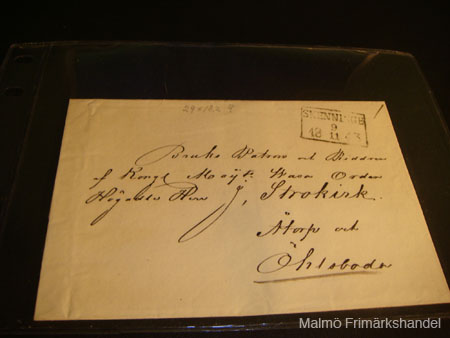 SKENNINGE
9
18 11 53
Bruks Patron och Riddaren
af Kongl Maj:ts Wasa Orden
Högädle Herr J, Strokirk.
Åtorp och
Öhlsboda
Malmö Frimärkshandel